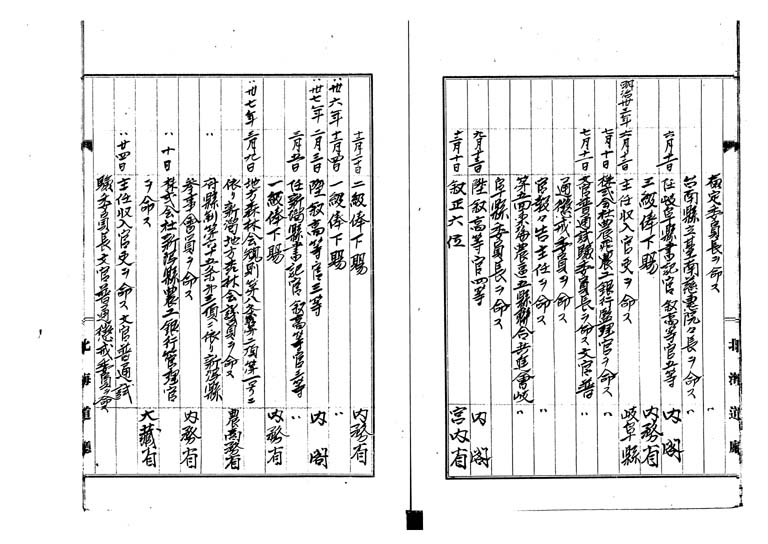 査定委員長ヲ命ス 〃
台南縣立臺南慈惠院々長ヲ命ス 〃
六月十一日 任岐阜縣書記官 叙高等官五等 内閣
三級俸下賜 内務省
明治卅二年六月十三日 主任収入官吏ヲ命ス 岐阜縣
七月十日 株式会社岐阜縣農工銀行監理官ヲ命ス 〃
七月十一日 文官普通試驗委員長ヲ命ス文官普
通懲戒委員ヲ命ス 〃
官報々告主任ヲ命ス 〃
第四回東海農區五縣聯合共進會岐
阜縣委員長ヲ命ス 〃
陞叙高等官四等 内閣
十二月十日 叙正六位 宮内省
北海道廳
二級俸下賜 内務省
〃卅六年 一級俸下賜 〃
〃卅七年 二月三日 陞叙高等官三等 内閣
三月五日 任新潟縣書記官 叙高等官三等 〃
一級俸下賜 内務省
〃卅七年三月九日 地方森林会規則第八条第二項第一号ニ
依リ新潟地方森林会議員ヲ命ス 農商務省
〃 府縣制第六十五条第三項ニ依リ新潟縣
参事會員ヲ命ス 内務省
〃十日 株式会社新潟縣農工銀行管理官
ヲ命ス 大藏省
〃廿四日 主任収入官吏ヲ命ス文官普通試
驗委員長文官普通懲戒委員ヲ命ス
北海道廳